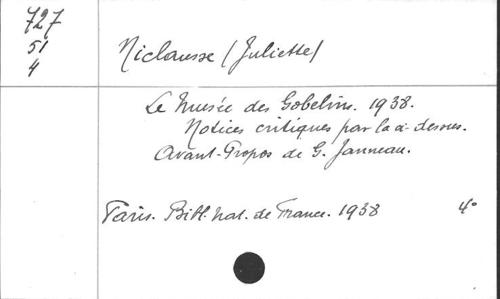 727
51
4
Niclausse (Juliette)
Le Musée des Gobelins. 1938.
Notices critiques par la ci-dessus.
Avant-Propos de G. Janneau.
Paris. Bibl. nat. de France. 1938 4°